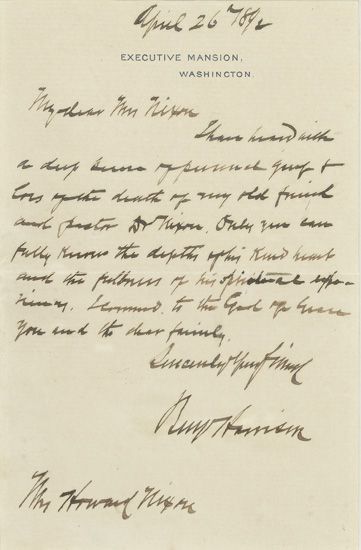 April 26th 1892
EXECUTIVE MANSION,
WASHINGTON.
My dear Mrs Nixon
I have heard with
a deep sense of personal grief &
loss of the death of my old friend
and pastor Dr Nixon. Only you can
fully know the depths of his kind heart
and the fullness of his spiritual expe-
riences. I commend to the God of Grace
you and the dear family.
Sincerely Your friend
Benj Harrison
Mrs Howard Nixon